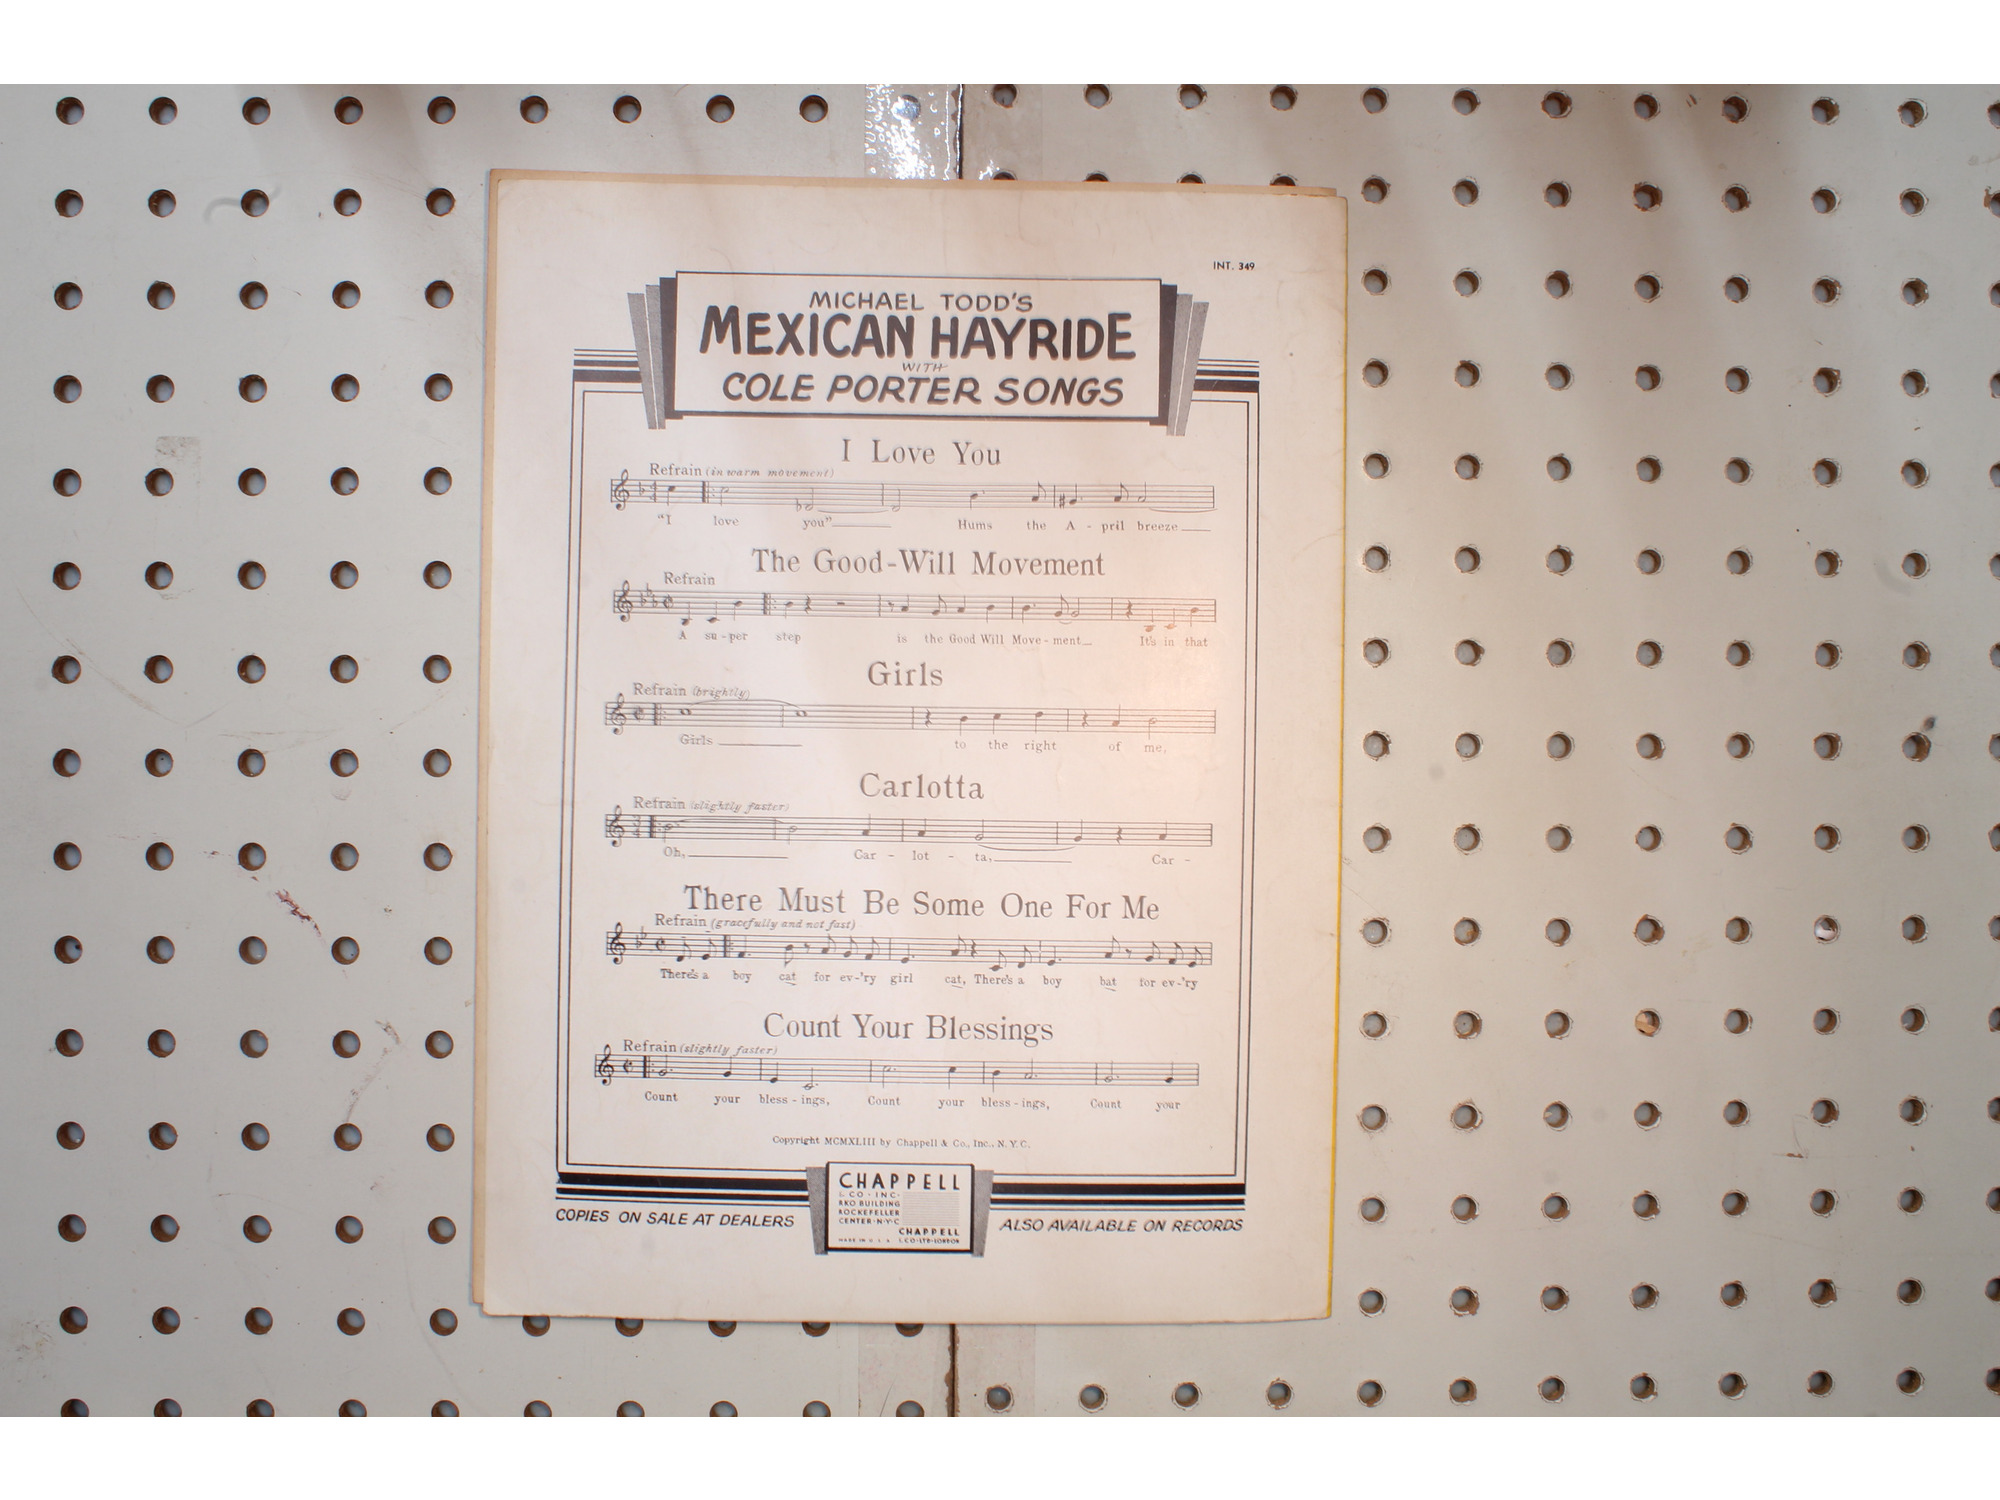 INT. 349
MICHAEL TODD'S
MEXICAN HAYRIDE
WITH
COLE PORTER SONGS
I Love You
Refrain (in warm movement)
"I love you" Hums the A - pril breeze
The Good-Will Movement
Refrain
A su - per step is the Good Will Move - ment It's in that
Girls
Refrain (brightly)
Girls to the right of me,
Carlotta
Refrain (slightly faster)
Oh, Car - lot - ta, Car -
There Must Be Some One For Me
Refrain (gracefully and not fast)
There's a boy cat for ev-'ry girl cat, There's a boy bat for ev-'ry
Count Your Blessings
Refrain (slightly faster)
Count your bless - ings, Count your bless - ings, Count your
Copyright MCMXLIII by Chappell & Co., Inc., N.Y.C.
CHAPPELL
& CO · INC ·
RKO BUILDING
ROCKEFELLER
CENTER · N·Y·C
CHAPPELL
MADE IN U. S. A. & CO · LTD · LONDON
COPIES ON SALE AT DEALERS
ALSO AVAILABLE ON RECORDS